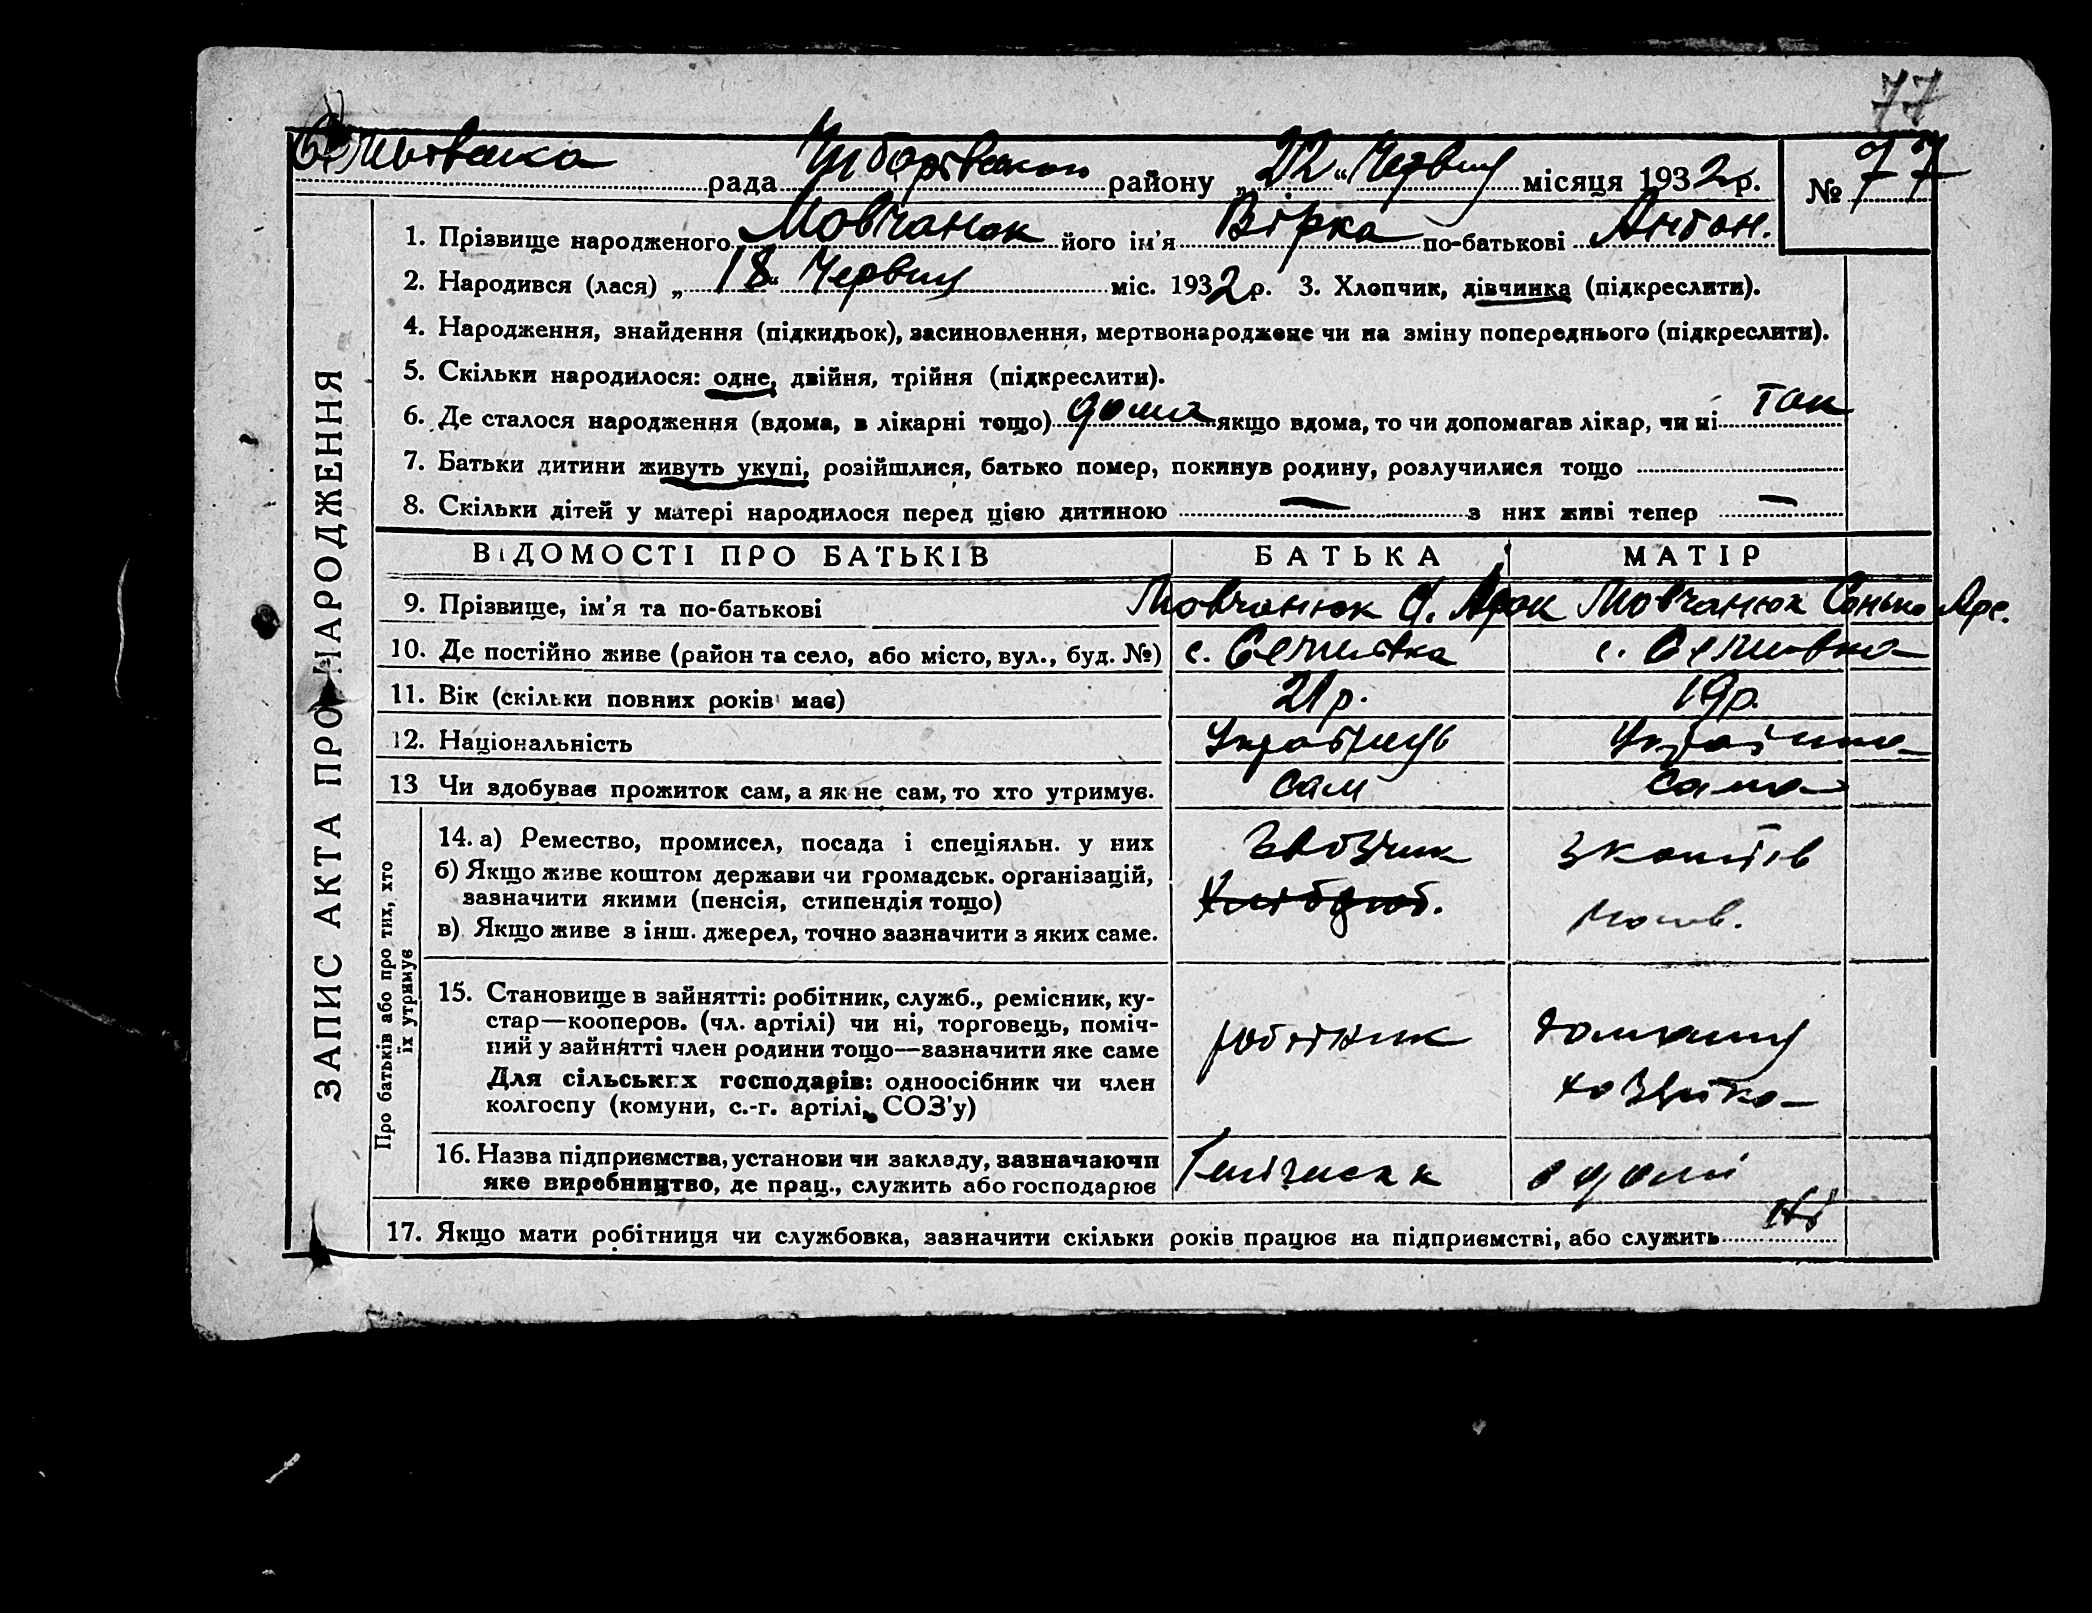 77
рада Чуборівського району „22“ Червня місяця 1932 р. № 77
ЗАПИС АКТА ПРО НАРОДЖЕННЯ
1. Прізвище народженого Мовчанюк його ім'я Вірка по-батькові Антон.
2. Народився (лася) „18“ Червня міс. 1932 р. 3. Хлопчик, дівчинка (підкреслити).
4. Народження, знайдення (підкидьок), засиновлення, мертвонароджене чи на зміну попереднього (підкреслити).
5. Скільки народилося: одне, двійня, трійня (підкреслити).
6. Де сталося народження (вдома, в лікарні тощо) дома якщо вдома, то чи допомагав лікар, чи ні так
7. Батьки дитини живуть укупі, розійшлися, батько помер, покинув родину, розлучилися тощо
8. Скільки дітей у матері народилося перед цією дитиною — з них живі тепер —
ВІДОМОСТІ ПРО БАТЬКІВ БАТЬКА МАТІР
9. Прізвище, ім'я та по-батькові Мовчанюк Мовчанюк Сонька
10. Де постійно живе (район та село, або місто, вул., буд. №) с. с.
11. Вік (скільки повних років має) 21 р. 19 р.
12. Національність Українець Українка
13 Чи здобуває прожиток сам, а як не сам, то хто утримує. Сам Сама
Про батьків або про тих, хто
їх утримує
14. а) Ремество, промисел, посада і спеціяльн. у них
б) Якщо живе коштом держави чи громадськ. організацій,
зазначити якими (пенсія, стипендія тощо)
в) Якщо живе з інш. джерел, точно зазначити з яких саме.
Ізвозчик
Хлібороб.
з коштів
чолов.
15. Становище в зайнятті: робітник, служб., ремісник, ку-
стар—кооперов. (чл. артілі) чи ні, торговець, поміч-
ний у зайнятті член родини тощо—зазначити яке саме
Для сільських господарів: одноосібник чи член
колгоспу (комуни, с.-г. артілі, СОЗ'у)
робітник
домашня
хозяйка
16. Назва підприємства, установи чи закладу, зазначаючи
яке виробництво, де прац., служить або господарює
в домі
17. Якщо мати робітниця чи службовка, зазначити скільки років працює на підприємстві, або служить ні